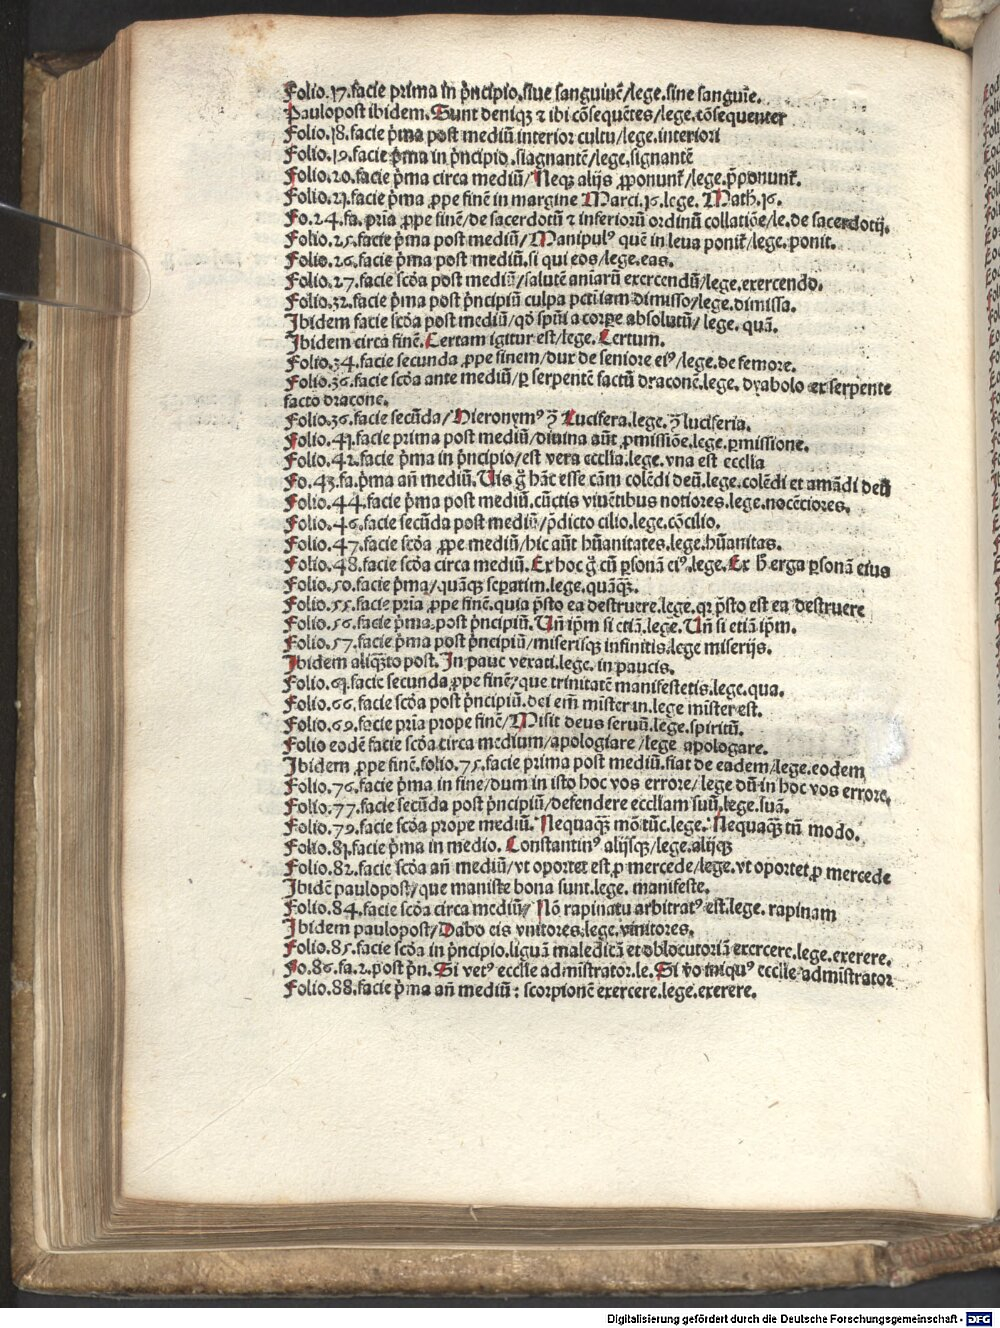 Folio.17.facie prima in p̄ncipio.siue sanguinē/lege.sine sanguīe.
Paulopost ibidem.Sunt deniqꝫ ⁊ ibi cōsequētes/lege.cōsequenter
Folio.18.facie p̄ma post mediū interior cultu/lege.interiori
Folio.19.facie p̄ma in p̄ncipio.stagnantē/lege.signantē
Folio.20.facie p̄ma circa mediū/Neqꝫ alijs ꝓponunt̄/lege.p̄ponunt̄.
Folio.21.facie p̄ma ꝓpe finē in margine Marci.16.lege. Math̄.16.
Fo.24.fa.pria ꝓpe finē/de sacerdotū ⁊ inferiorū ordinū collatiōe/le.de sacerdotij.
Folio.25.facie p̄ma post mediū/Manipulꝰ quē in leua ponit̄/lege.ponit.
Folio.26.facie p̄ma post mediū.si qui eos/lege.eas.
Folio.27.facie scōa post mediū/salutē aniarū exercendū/lege.exercendo.
Folio.32.facie p̄ma post p̄ncipiū culpa pctī iam dimisso/lege.dimissa.
Ibidem facie scōa post mediū/qō spūi a corpe absolutū/lege. quā.
Ibidem circa finē.Certam igitur est/lege. Certum.
Folio.34.facie secunda ꝓpe finem/dux de seniore eiꝰ/lege.de femore.
Folio.36.facie scōa ante mediū/ꝑ serpentē factū draconē.lege. dyabolo ex serpente
facto dracone.
Folio.36.facie secūda/Hieronymꝰ ꝯ̄ Lucifera.lege. ꝯ̄ luciferia.
Folio.41.facie prima post mediū/diuina aūt ꝓmissiōe.lege.ꝑmissione.
Folio.42.facie p̄ma in p̄ncipio/est vera ecclīa.lege.vna est ecclīa
Fo.43.fa.p̄ma añ mediū.Uis g̊ hāc esse cām colēdi deū.lege.colēdi et amādi deū
Folio.44.facie p̄ma post mediū.cūctis viuētibus notiores.lege.nocētiores.
Folio.46.facie secūda post mediū/p̄dicto cilio.lege.cōcilio.
Folio.47.facie scōa ꝓpe mediū/hic aūt hūanitates.lege.hūanitas.
Folio.48.facie scōa circa mediū.Ex hoc g̊ cū ꝑsonā eiꝰ.lege.Ex h̄ erga ꝑsonā eius
Folio.50.facie p̄ma/quāqꝫ seꝑatim.lege.quāqꝫ.
Folio.55.facie pria ꝓpe finē.quia p̄sto ea destruere.lege.qꝛ p̄sto est ea destruere
Folio.56.facie p̄ma.post p̄ncipiū.Uñ ip̄m si etiā.lege.Uñ si etiā ip̄m.
Folio.57.facie p̄ma post p̄ncipiū/miserisqꝫ infinitis.lege miserijs.
Ibidem aliqͣto post. In pauc vexati.lege.in paucis.
Folio.61.facie secunda ꝓpe finē/que trinitatē manifestetis.lege.qua.
Folio.66.facie scōa post p̄ncipiū.dei em̄ mister in.lege mister est.
Folio.69.facie pria prope finē/Misit deus seruū.lege.spiritū.
Folio eodē facie scōa circa medium/apologiare/lege apologare.
Ibidem ꝓpe finē.folio.75.facie prima post mediū.fiat de eadem/lege.eodem
Folio.76.facie p̄ma in fine/dum in isto hoc vos errore/lege dū in hoc vos errore.
Folio.77.facie secūda post p̄ncipiū/defendere ecclīam suū.lege.suā.
Folio.79.facie scōa prope mediū.Nequaqꝫ mō tūc.lege.Nequaqꝫ tñ modo.
Folio.81.facie p̄ma in medio. Constantinꝰ alijsqꝫ/lege.alijqꝫ
Folio.82.facie scōa añ mediū/vt oportet est ꝓ mercede/lege.vt oportet ꝓ mercede
Ibidē paulopost/que maniste bona sunt.lege. manifeste.
Folio.84.facie scōa circa mediū/Nō rapinatu arbitratꝰ est.lege. rapinam
Ibidem paulopost/Dabo eis vnitores.lege.vinitores.
Folio.85.facie scōa in p̄ncipio.linguā maledicā et oblocutoriā exercere.lege.exerere.
Fo.86.fa.2.post p̄n.Si vetꝰ ecclīe admistrator.le.Si ṽo iniquꝰ ecclīe admīstrator
Folio.88.facie p̄ma añ mediū : scorpionē exercere.lege.exerere.
Digitalisierung gefördert durch die Deutsche Forschungsgemeinschaft - DFG